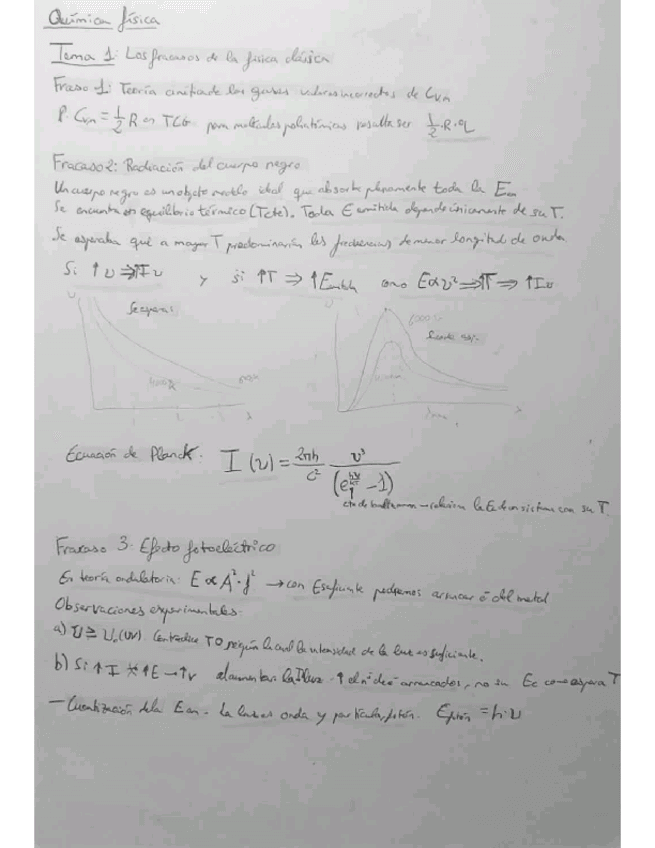 Química física
Tema 1: Los fracasos de la física clásica
Fracaso 1: Teoría cinética de los gases valores incorrectos de Cvm
P. Cvm = 1/2 R en TCG para moléculas poliatómicas resulta ser 1/2·R·
Fracaso 2: Radiación del cuerpo negro
Un cuerpo negro es un objeto modelo ideal que absorbe plenamente toda la Eem
Se encuentra en equilibrio térmico (Tcte). Toda E emitida depende únicamente de su T.
Se esperaba que a mayor T predominarían las frecuencias de menor longitud de onda.
Si ↑υ ⇒ ↑Iυ y si ↑T ⇒ ↑Emitida como E∝υ² ⇒ ↑T ⇒ ↑Iυ
Se espera:
λ
λ
Ecuación de Planck. I(υ) = 2πh/c² υ³/(e^(hυ/kT) − 1)
cte de boltzmann → relaciona la E de un sistema con su T.
Fracaso 3: Efecto fotoeléctrico
En teoría ondulatoria: E ∝ A²·f² → con E suficiente podremos arrancar ē del metal
Observaciones experimentales:
a) υ ≥ υ₀ (UV). Contradice TO según la cual la intensidad de la luz es suficiente.
b) Si ↑I ↑E → ↑v al aumentar la I luz ↑ el nº de ē arrancados, no su Ec como espera T
— Cuantización de la Eem. La luz es onda y partícula, fotón. Efotón = h·υ